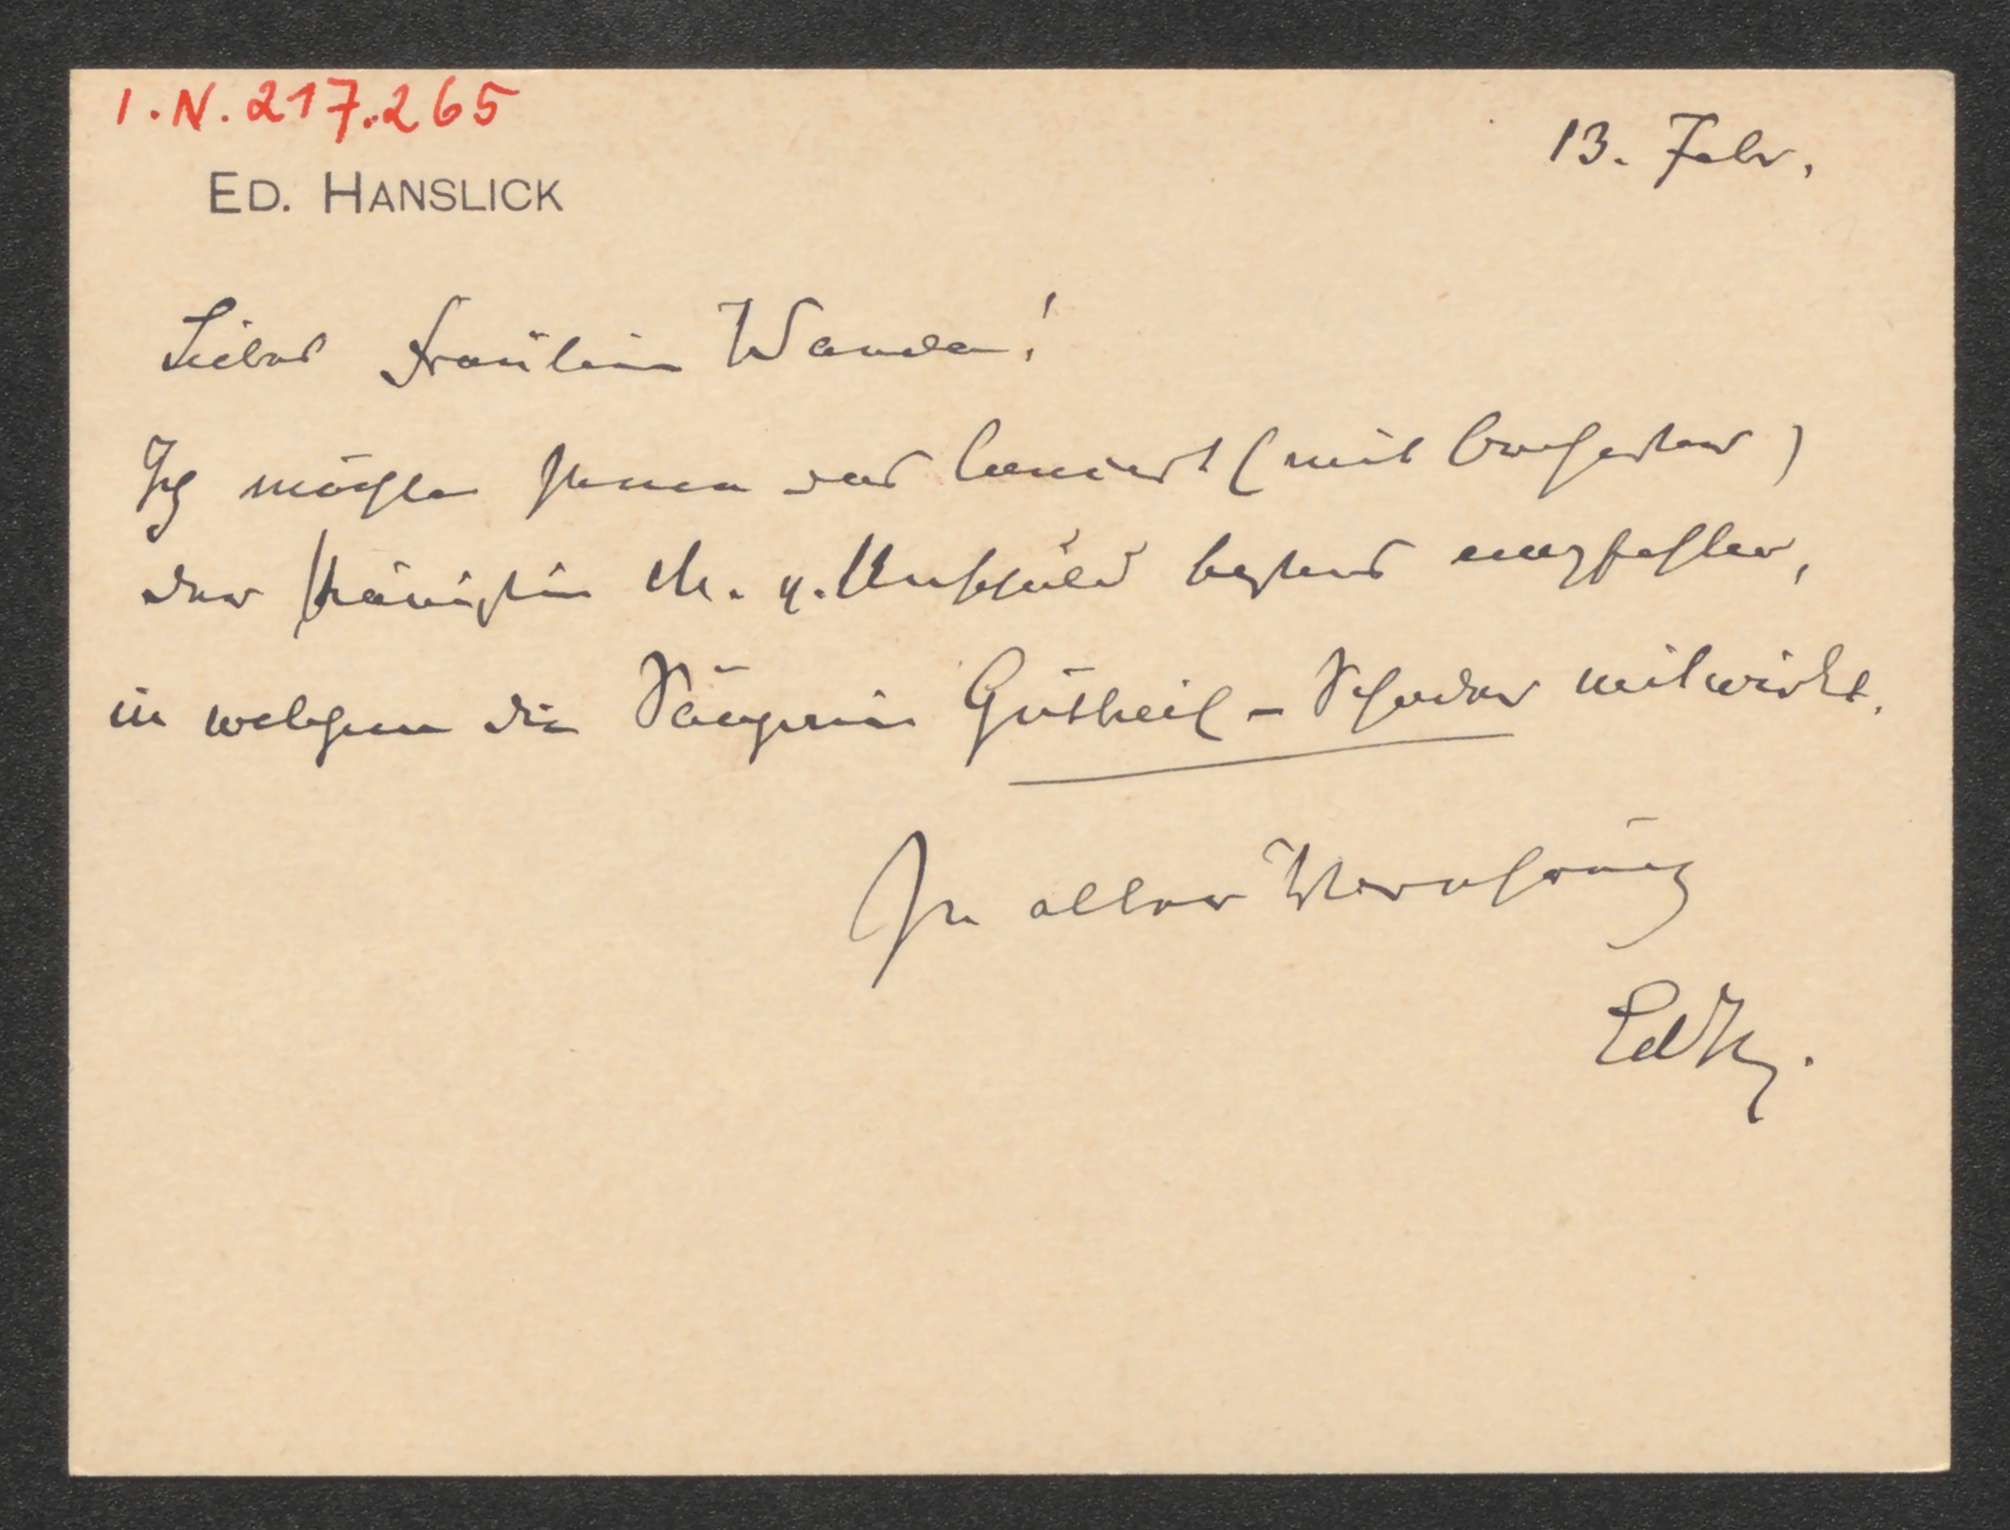 I.N. 217.265
13. Febr.
ED. HANSLICK
Liebes Fräulein Wanda!
Ich möchte Ihnen das Concert (mit Orchester)
der Pianistin M. v. Unschuld bestens empfehlen,
in welchem die Sängerin Gutheil-Schoder mitwirkt.
In aller Verehrung
EdH.